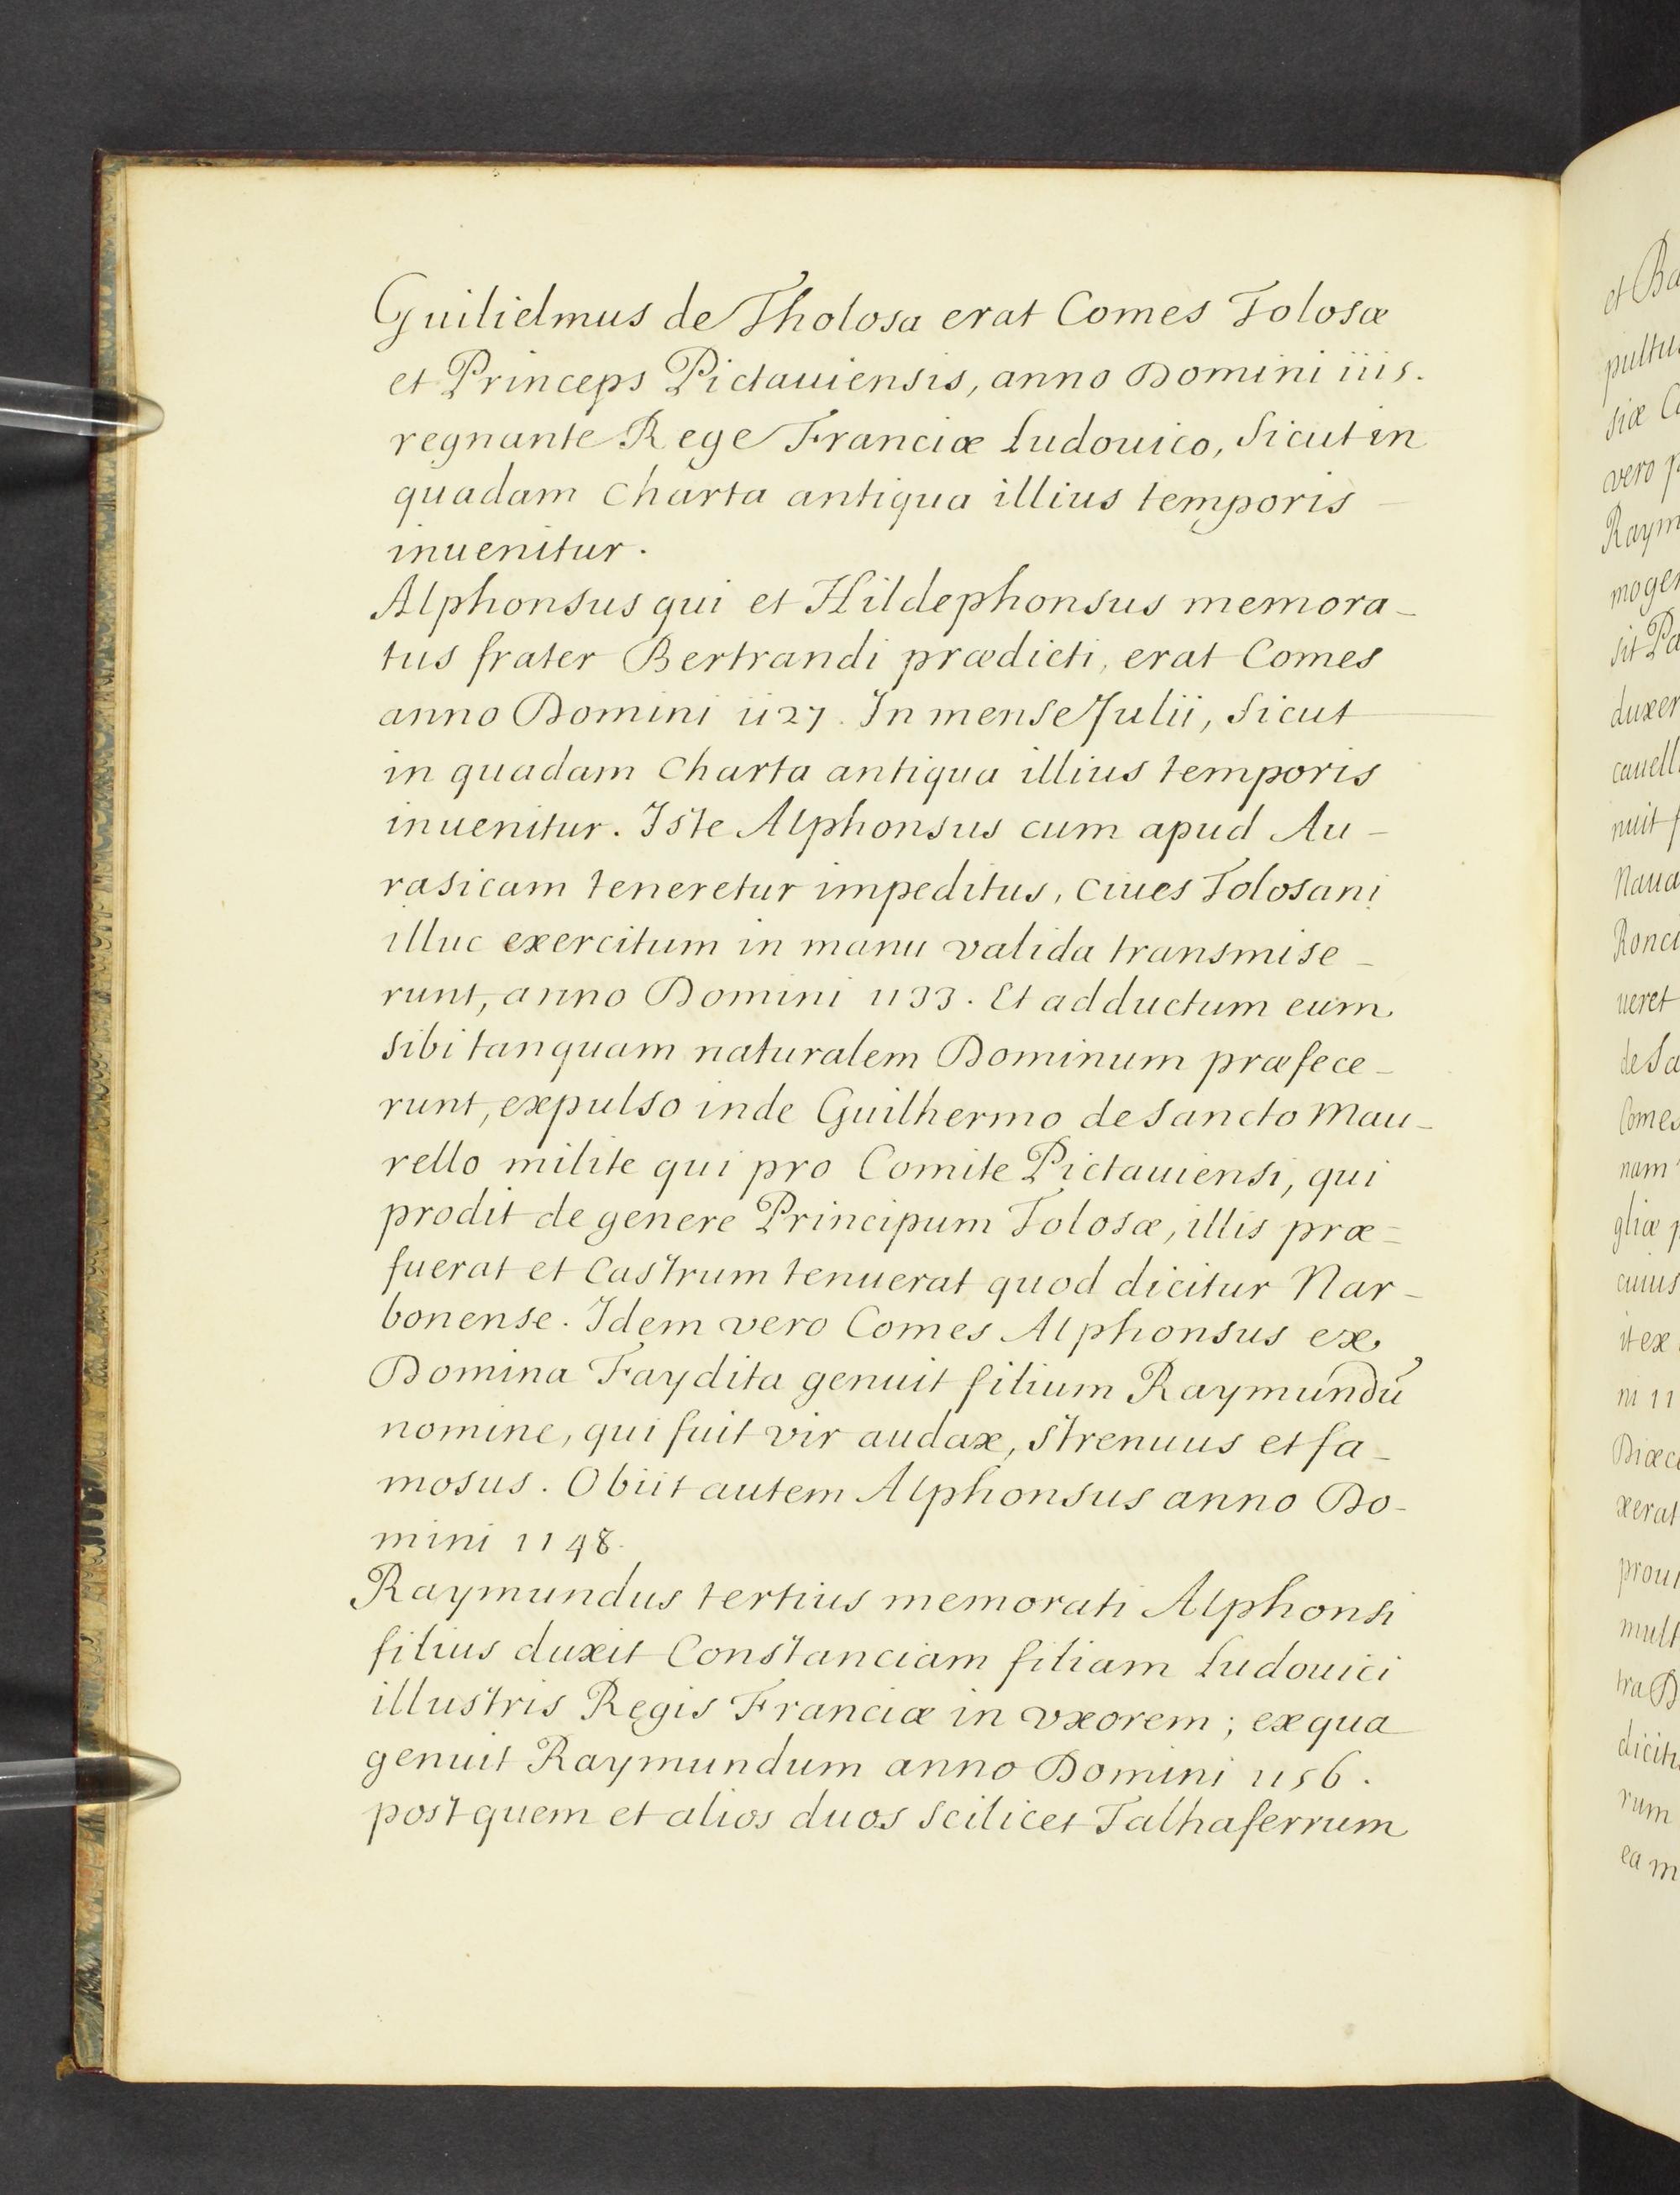 Guilielmus de Tholosa erat Comes Tolosæ
et Princeps Pictauiensis, anno Domini 1115.
regnante Rege Franciæ Ludouico, Sicut in
quadam Charta antiqua illius temporis
inuenitur.
Alphonsus qui et Hildephonsus memora-
tus frater Bertrandi prædicti, erat Comes
anno Domini 1127. In mense Julii, Sicut
in quadam Charta antiqua illius temporis
inuenitur. Iste Alphonsus cum apud Au-
rasicam teneretur impeditus, Ciues Tolosani
illuc exercitum in manu valida transmise-
runt, anno Domini 1133. Et adductum eum
sibi tanquam naturalem Dominum præfece-
runt, expulso inde Guilhermo de Sancto Mau-
rello milite qui pro Comite Pictauiensi, qui
prodit de genere Principum Tolosæ, illis præ-
fuerat et Castrum tenuerat quod dicitur Nar-
bonense. Idem vero Comes Alphonsus ex
Domina Faydita genuit filium Raymundũ
nomine, qui fuit vir audax, Strenuus et fa-
mosus. Obiit autem Alphonsus anno Do-
mini 1148.
Raymundus tertius memorati Alphonsi
filius duxit Constanciam filiam Ludouici
illustris Regis Franciæ in vxorem; ex qua
genuit Raymundum anno Domini 1156.
post quem et alios duos Scilicet Talhaferrum
et Ba
pultus
siæ C
vero p
Raym
moger
sit Pa
duxer
cauell
nuit f
Naua
Ronc
ueret
de Sa
Comes
nam
gliæ p
cuius
it ex
ni 11
Diœc
xerat
prou
mult
tra D
dicit
rum
ea m